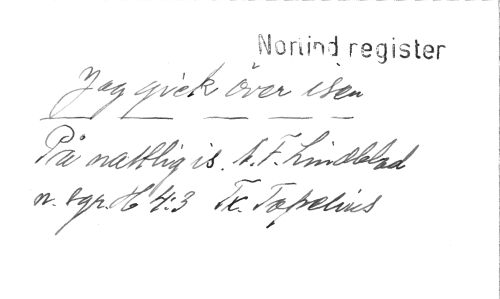 Norlind register
Jag gick över isen
På nattlig is. A. F. Lindblad
n. sgr. H 4:3 Tx. Topelius